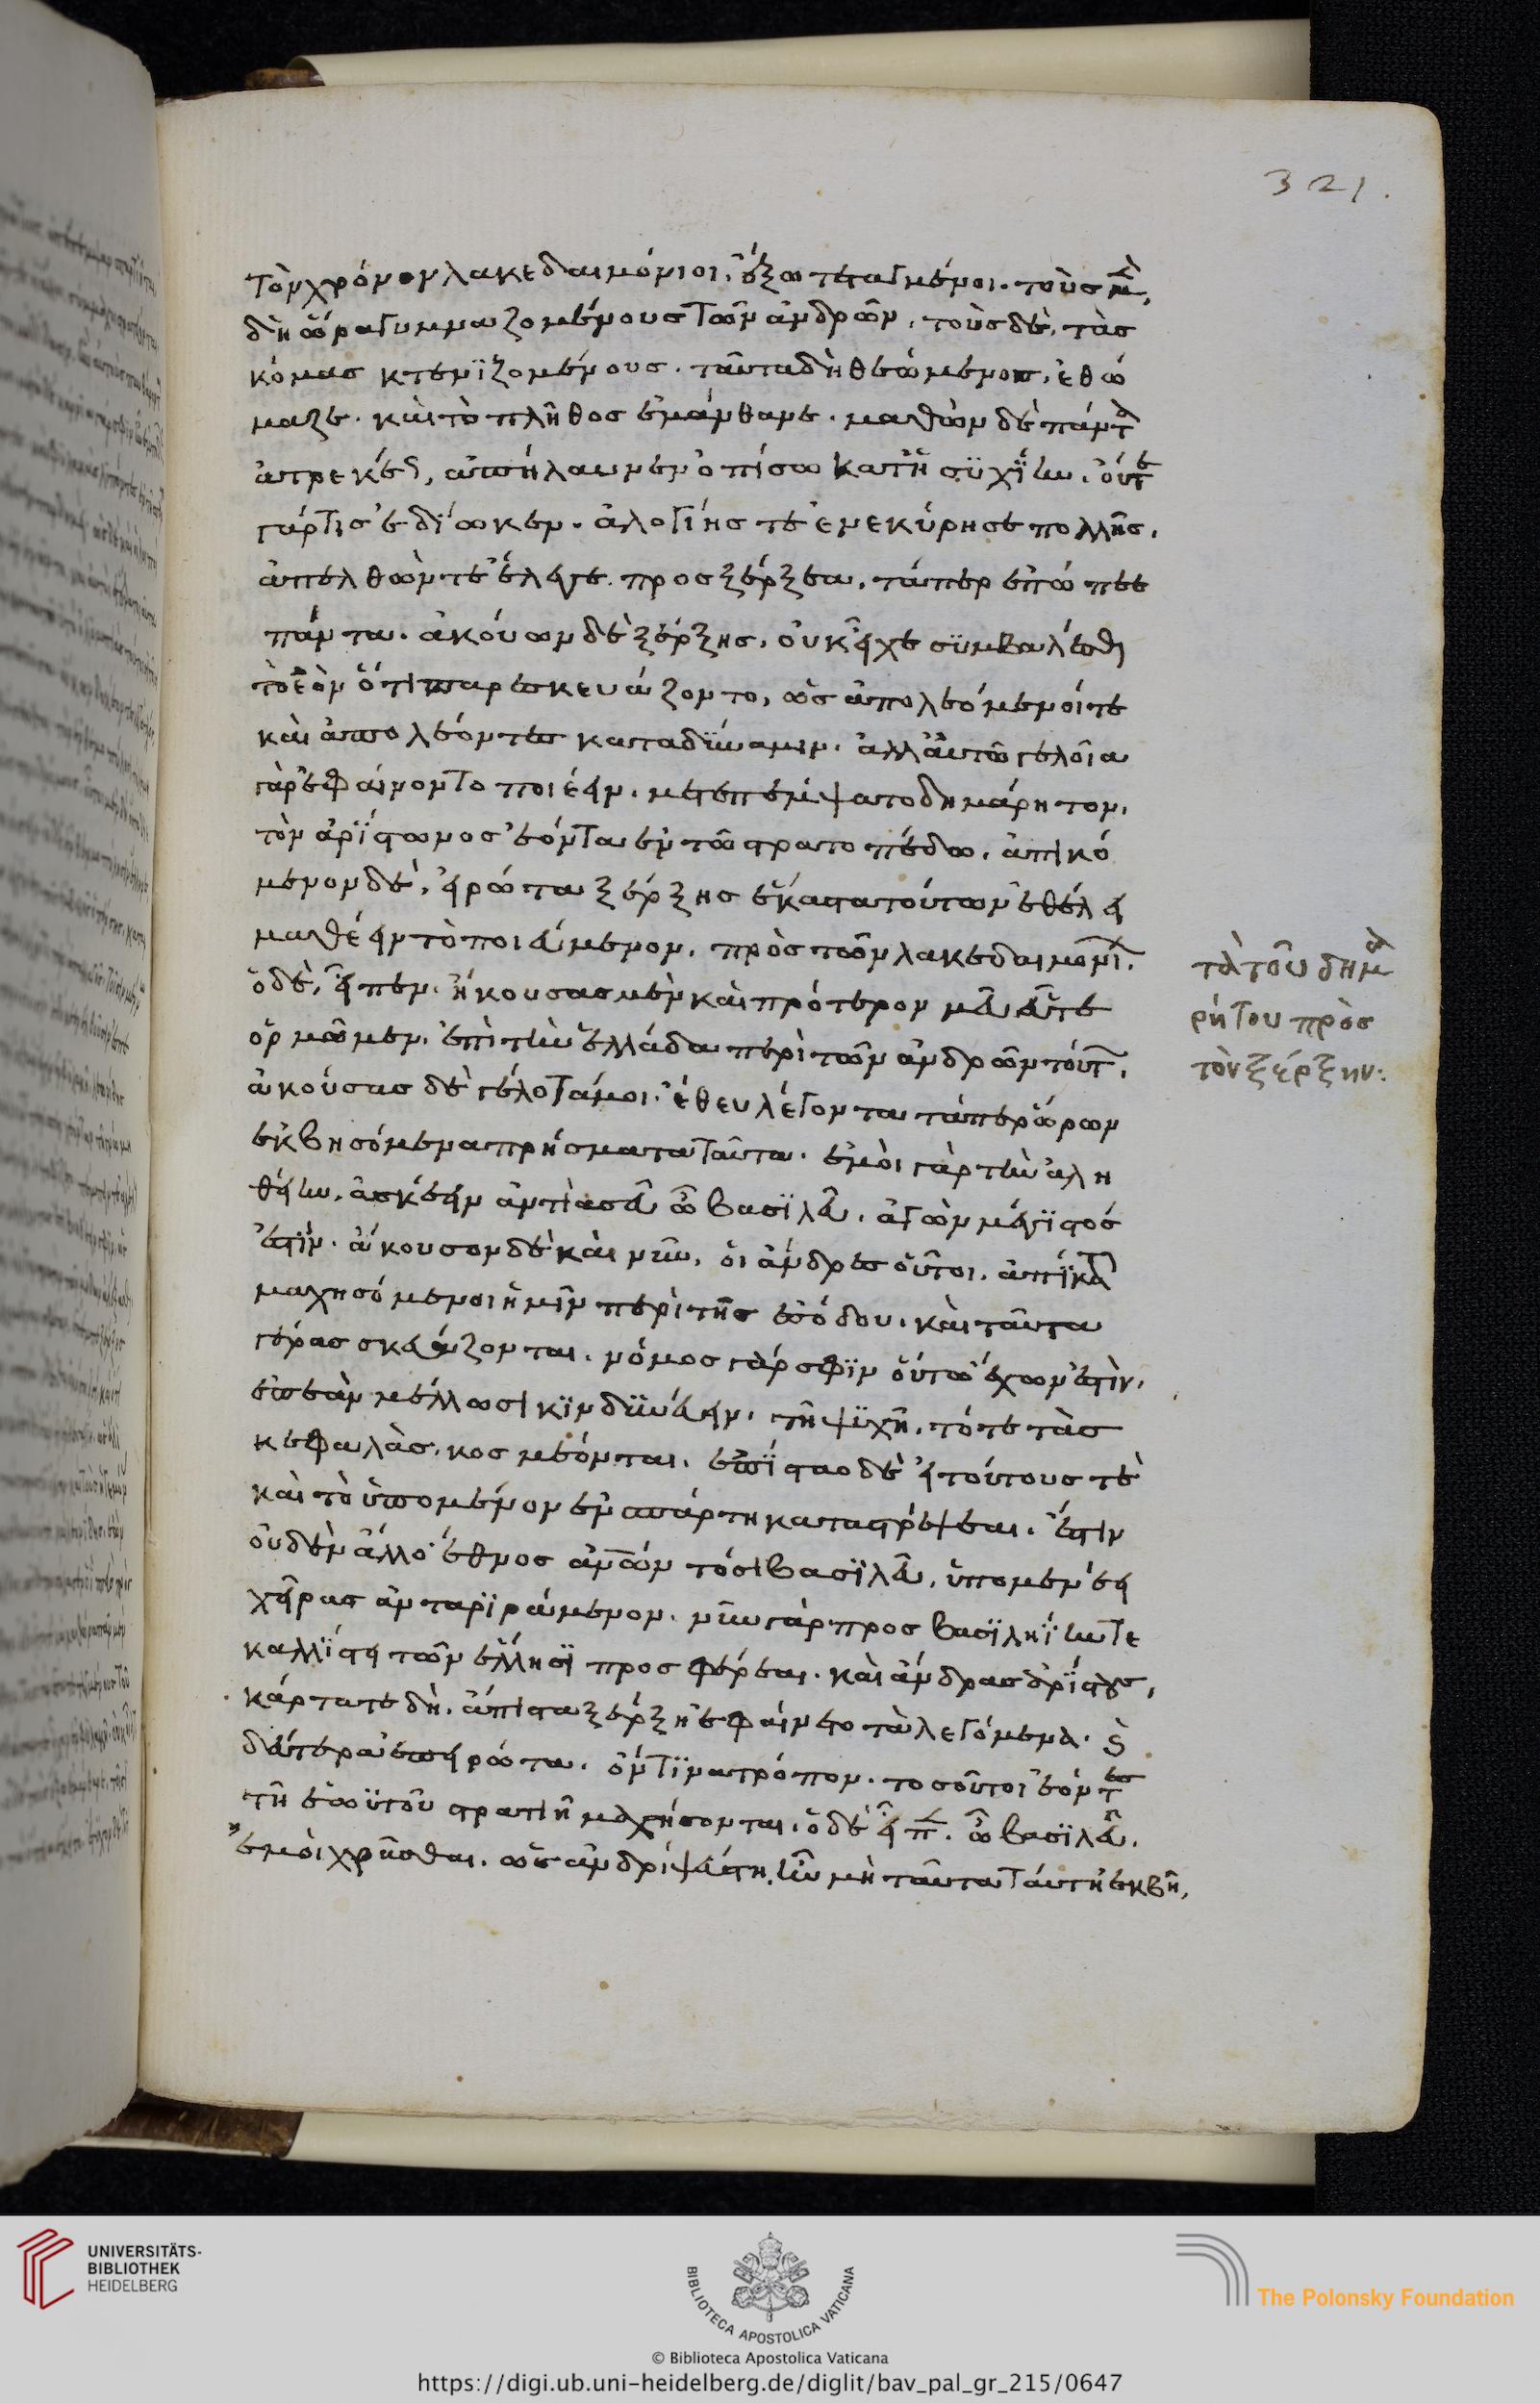 321.
τὸν χρόνον λακεδαιμόνιοι, ἔξω τεταγμένοι. τοὺς μὲ,
δὴ ὥρα γυμναζομένους τῶν ἀνδρῶν, τοὺς δὲ, τὰς
κόμας κτενϊζομένους. ταῦτα δὴ θεώμενος, ἐθώ
μαζε. καὶ τὸ πλῆθος ἐμάνθανε. μαθὼν δὲ πάντ
ἀτρεκέως, ἀπήλαυνεν ὀπίσω κατ' ἡσϋχΐην. οὔτε
γάρ τις ἐδΐωκεν. ἀλογίης τὲ ἐνεκύρησε πολλῆς.
ἀπελθών τε ἔλεγε προς ξέρξεα, τάπερ ὀπώπεε
πάντα. ἀκούων δὲ ξέρξης, οὐκ εἶχε συμβαλέσθαι
τὸ ἐὸν ὅτι παρεσκευάζοντο, ὡς ἀπολεόμενοί τε
καὶ ἀπολέοντες κατα δΰναμιν. ἀλλ' αὐτῶ γελοῖα
γὰρ ἐφαίνοντο ποιέειν. μετεπέμψατο δημάρητον,
τὸν ἀρΐστωνος ἐόντα ἐν τῶ στρατοπέδω. ἀπικό
μενον δὲ, εἰρώτα ξέρξης ἕκαστα τούτων ἐθέλει
μαθέειν τὸ ποιεύμενον. πρὸς τῶν λακεδαιμονί.
ὁ δὲ, εἶπεν. ἤκουσας μὲν καὶ πρότερον μεῦ εὖτε
ὁρμῶμεν. ἐπὶ τὴν ἑλλάδα περὶ τῶν ἀνδρῶν τούτ.
ἀκούσας δὲ γέλοτά μοι. ἔθευ λέγοντα τάπερ ὥρων
ἐκβησόμενα πρήσματα ταῦτα. ἐμοὶ γὰρ τὴν ἀλη
θείην. ἀσκέειν ἀντία σεῦ ὦ βασϊλεῦ. ἀγὼν μέγϊστός
ἐστϊν. ἄκουσον δὲ καὶ νῦν. οἱ ἄνδρες οὗτοι. ἀπΐκατ
μαχησόμενοι ἡμῖν περὶ τῆς ἐσόδου. καὶ ταῦτα
γέρας σκευάζονται. νόμος γάρ σφϊν οὕτω ἔχων ἐστὶν.
ἐπεὰν μέλλωσι κϊνδϋνεύειν. τῆ ψϋχῆ, τότε τὰς
κεφαλὰς. κοσμέονται. ἐπΐσταο δὲ εἰ τούτους τὲ
καὶ τὸ ὑπομένον ἐν σπάρτη καταστρέψεαι. ἔστιν
οὐδὲν ἄλλο ἔθνος ἀνων τό σὲ βασϊλεῦ, ὑπομενέει
χεῖρας ἀνταϊράμενον. νῦν γὰρ προς βασϊληΐην τε
καλλΐστη τῶν ἑλλησϊ προσφέρεαι. καὶ ἄνδρας ἀρΐστους,
κάρτα τε δὴ. ἄπιστα ξέρξη ἐφαίνετο τὰ λεγόμενα. καὶ
δεύτερα ἐπειρώτα. ὅντϊνα τρόπον. τοσοῦτοι ἐόντες
τῆ ἑωϋτοῦ στρατιῆ μαχήσονται. ὁ δὲ εἶπε. ὦ βασϊλεῦ.
ἐμοὶ χρῆσθαι. ὡς ἀνδρὶ ψεύστη. ἢν μὴ ταῦτα ταύτη ἐκβῆ,
τὰ τοῦ δημα
ρήτου πρὸς
τὸν ξέρξην:
UNIVERSITÄTS-
BIBLIOTHEK
HEIDELBERG
BIBLIOTECA APOSTOLICA VATICANA
© Biblioteca Apostolica Vaticana
The Polonsky Foundation
https://digi.ub.uni-heidelberg.de/diglit/bav_pal_gr_215/0647